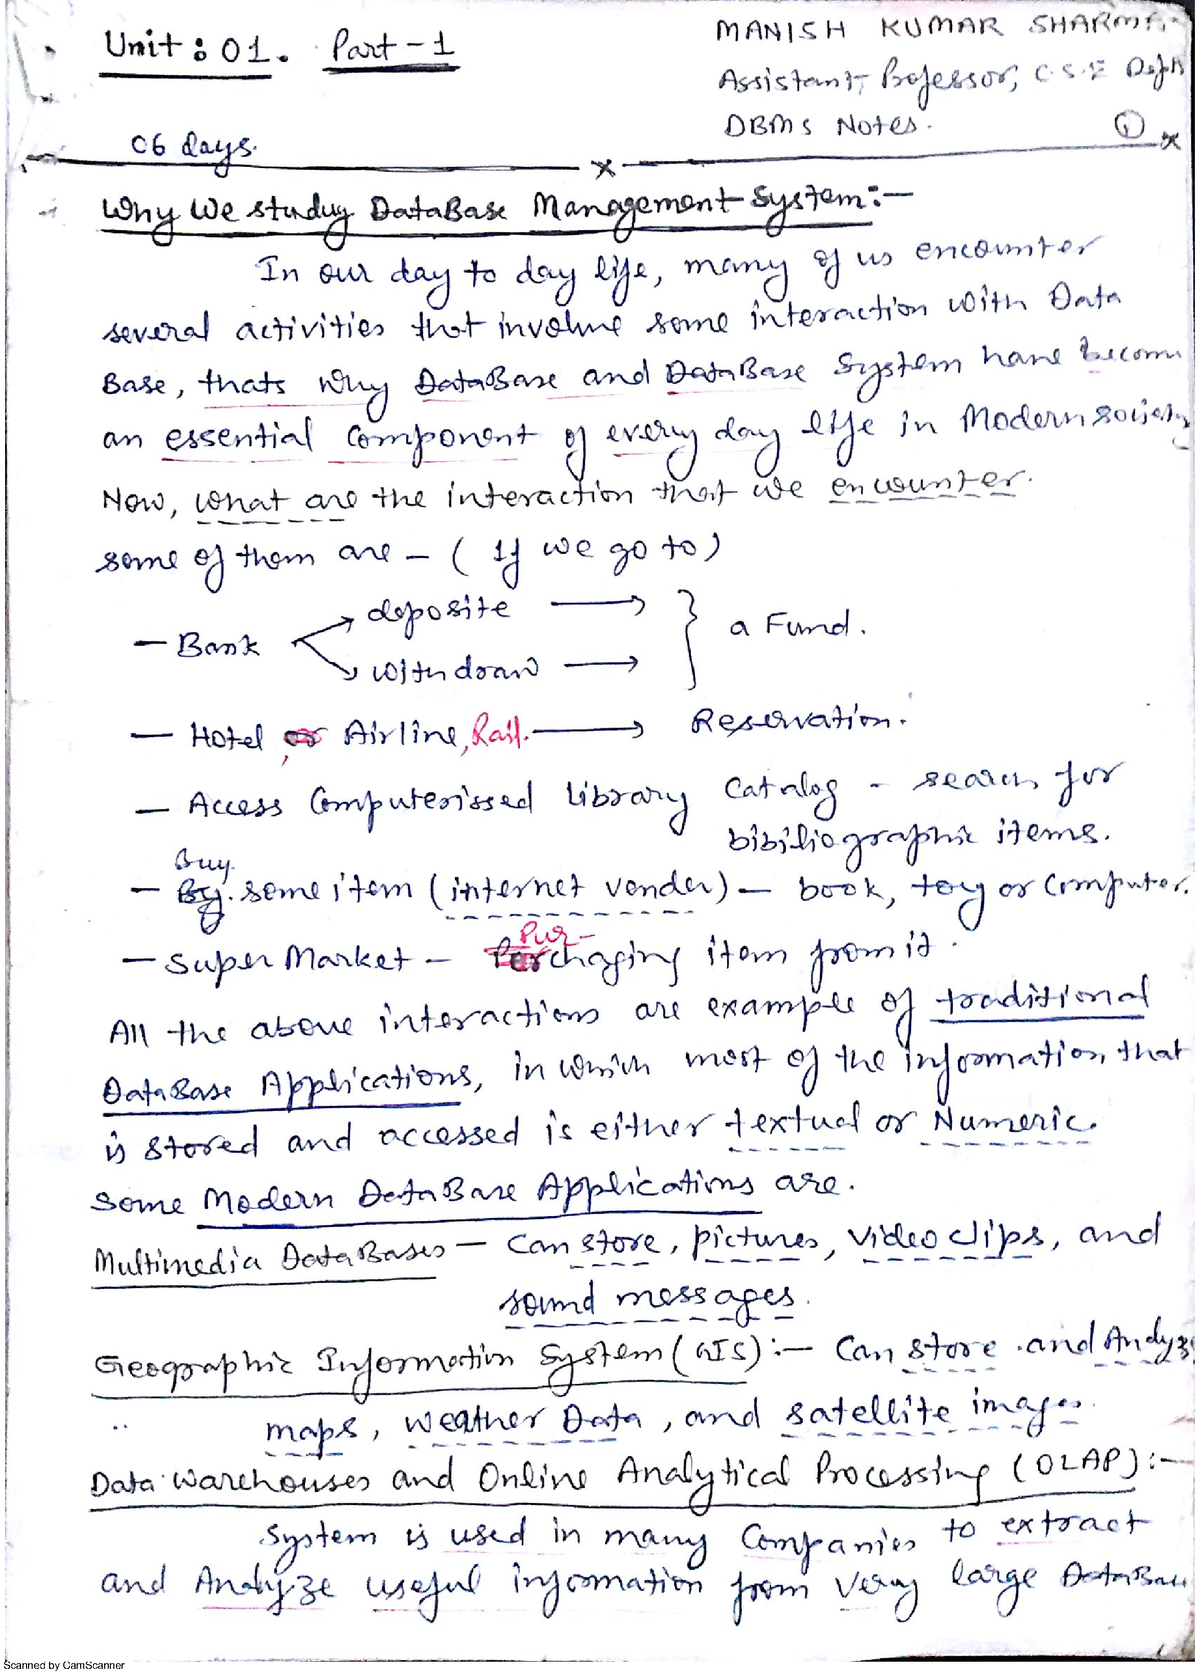 Unit: 01. Part-1
MANISH KUMAR SHARMA
Assistant Professor, C.S.E Deptt
DBMS Notes. 1
06 days.
Why We study DataBase Management System:-
In our day to day life, many of us encounter
several activities that involve some interaction with Data
Base, thats why DataBase and DataBase System have become
an essential component of every day life in Modern society
Now, what are the interaction that we encounter.
some of them are - ( If we go to )
- Bank deposite
withdraw a Fund.
- Hotel, Airline, Rail. Reservation.
- Access Computerissed Library Catalog - search for
bibiliographic items.
Buy
- By some item (internet vender) - book, toy or Computer.
- Super Market - Purchaging item from it.
All the above interactions are example of traditional
DataBase Applications, in which most of the information that
is stored and accessed is either textual or Numeric.
Some Modern DataBase Applications are.
Multimedia DataBases - Can store, pictures, video clips, and
sound messages.
Geographic Information System (GIS) :- Can store and Analyze
maps, weather Data, and satellite images.
Data Warehouses and Online Analytical Processing (OLAP) :-
System is used in many Companies to extract
and Analyze useful information from very large DataBase
Scanned by CamScanner